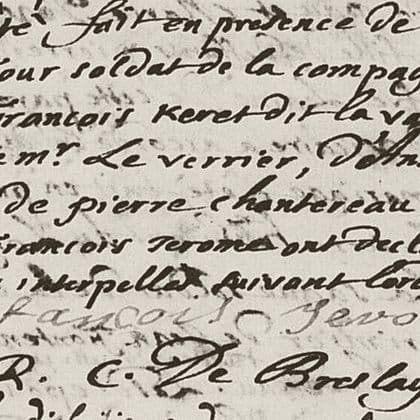 té fait en presence de
our soldat de la compag
francois Keret dit la va
e mr Le verrier,
de pierre chantereau
francois Jerome ont decl
interpellez suivant lord
francois Jero
R. C. De Breslay